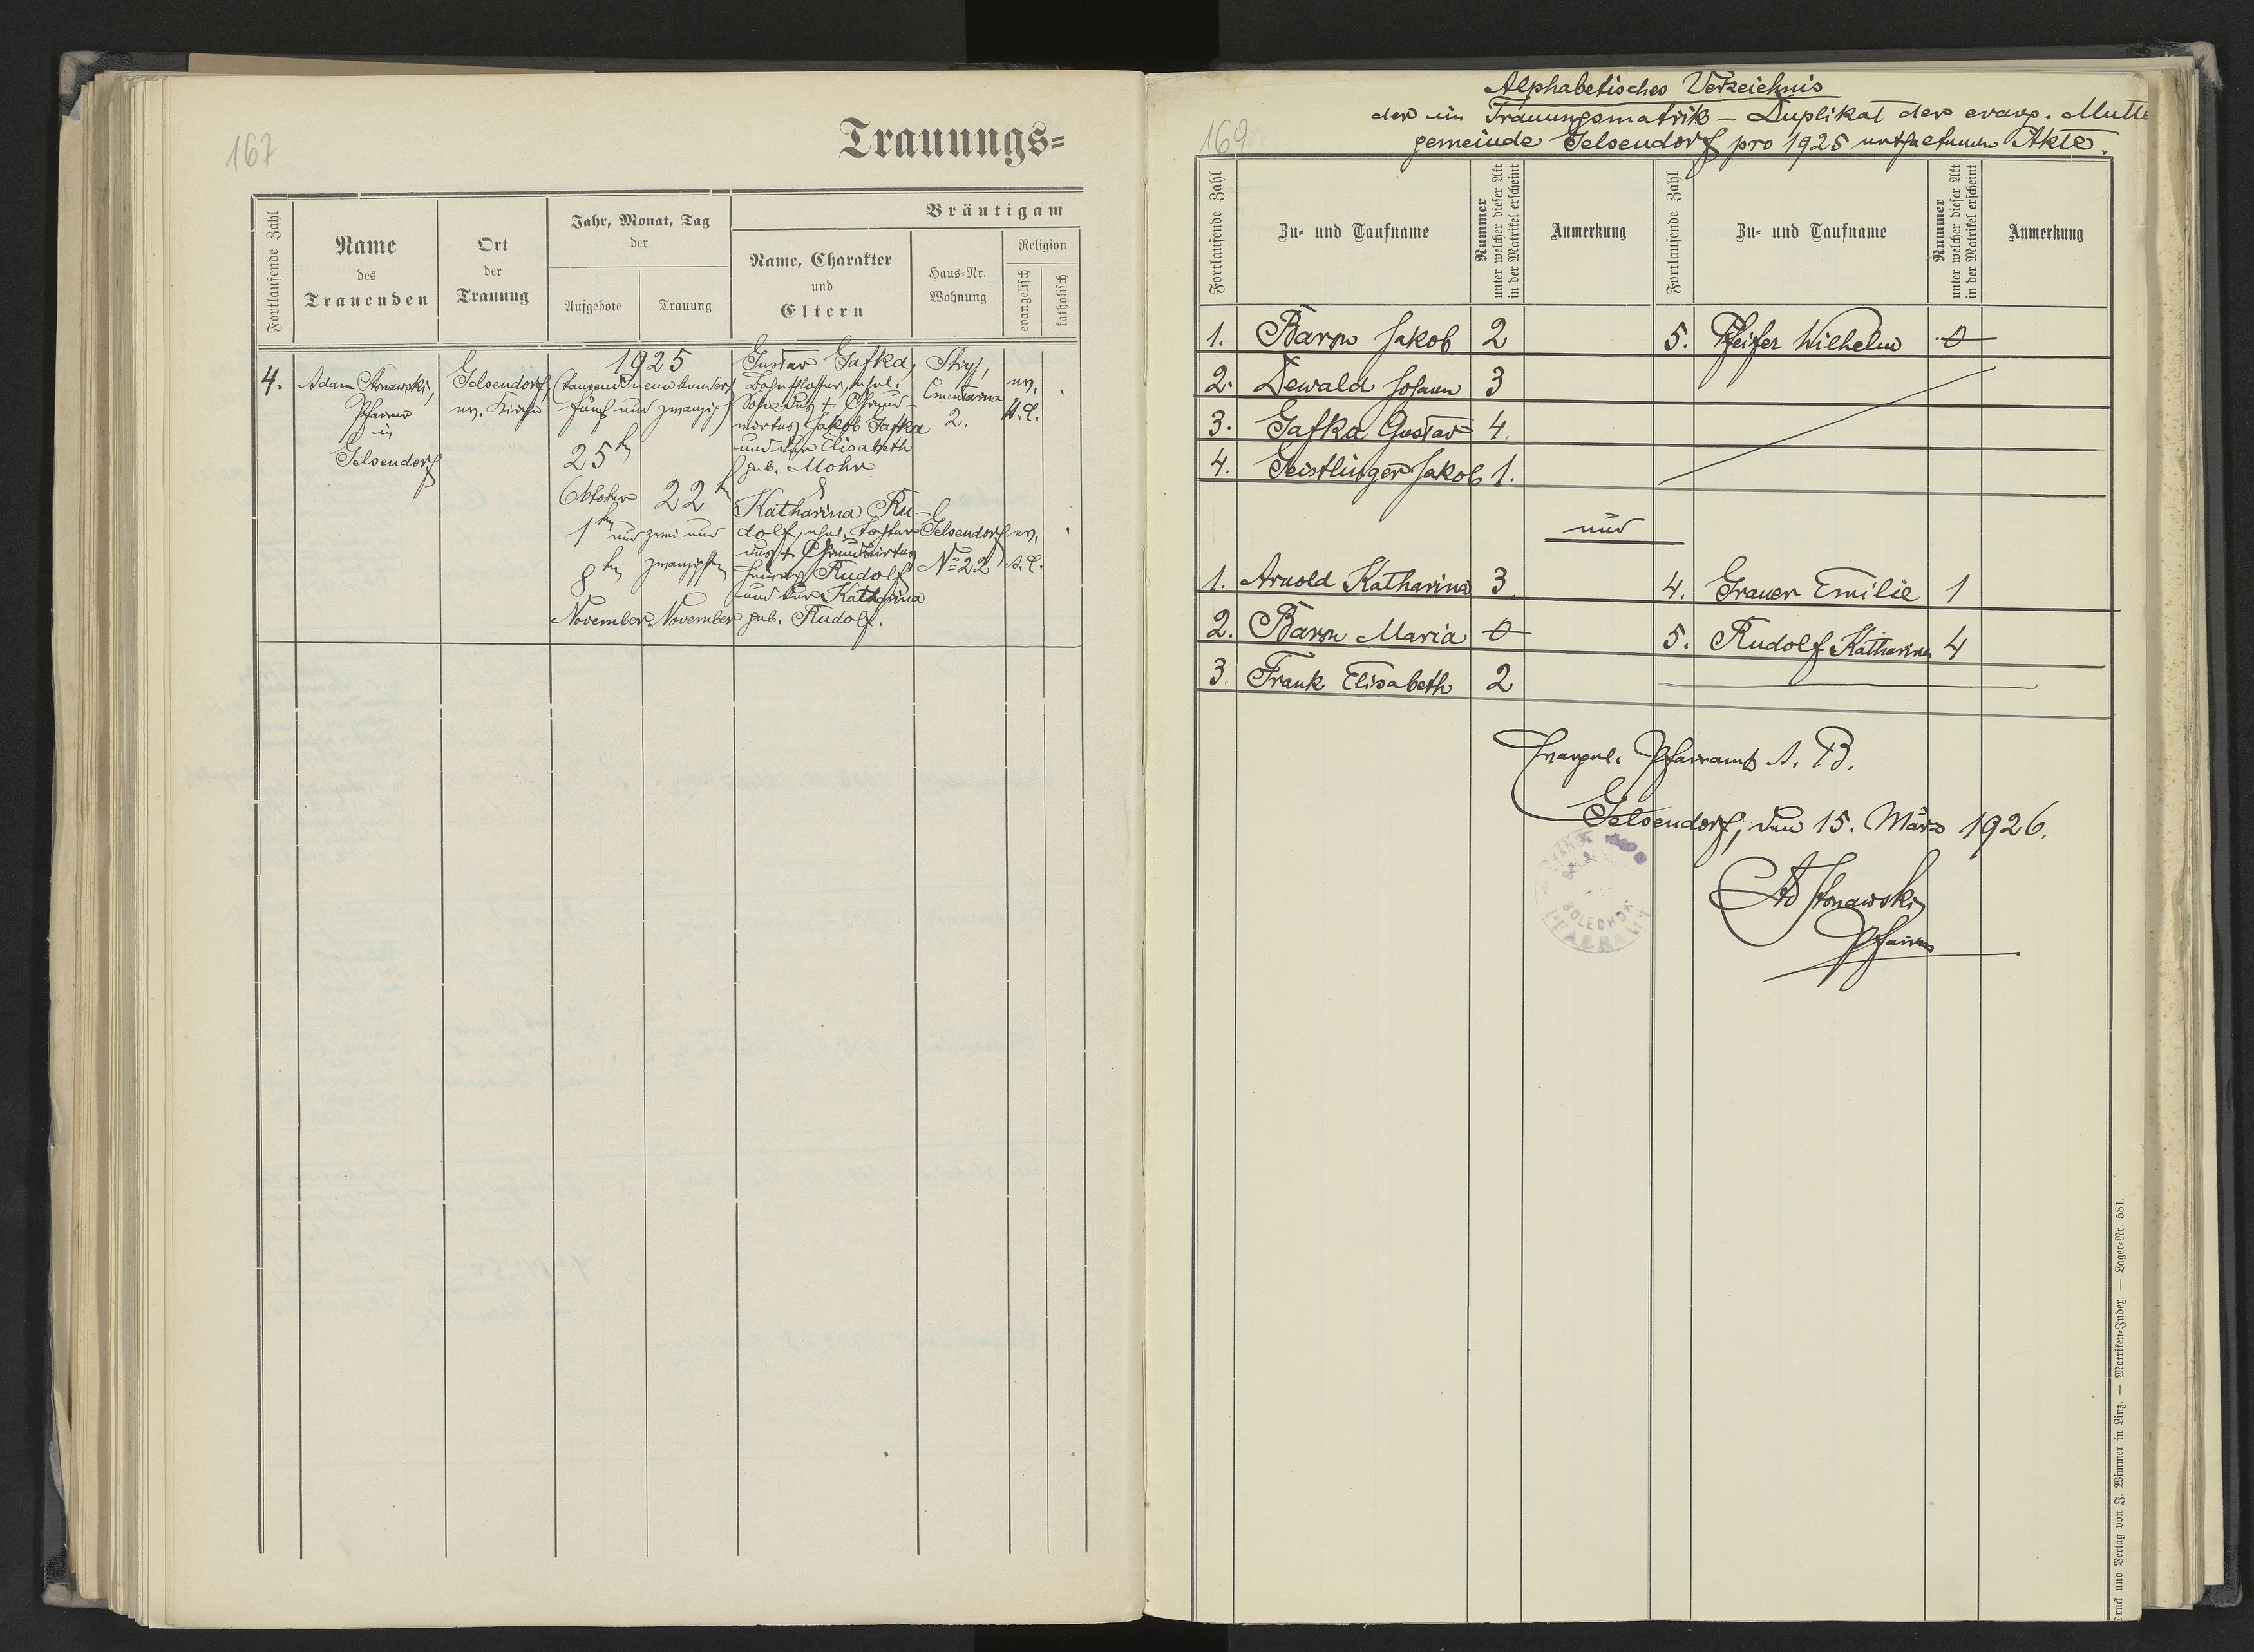 167
Trauungs=
Fortlaufende Zahl
Name
des
Trauenden
Ort
der
Trauung
Jahr, Monat, Tag
der
Aufgebote
Trauung
Bräutigam
Name, Charakter
und
Eltern
Haus=Nr.
Wohnung
Religion
evangelisch
katholisch
4.
Adam Stonawski,
Pfarrer
in
Gelsendorf
Gelsendorf,
ev. Kirche
1925
(tausendneunhundert
fünf und zwanzig)
25
Oktober
1ten und
8ten
November
22
zwei und
zwanzigsten
November
Gustav Gafka,
ehel.
Sohn des + Grund-
wirtes Jakob Gafka
und der Elisabeth
geb. Mohr
&
Katharina Ru-
dolf, ehel. Tochter
des + Grundwirtes
Rudolf
und der Katharina
geb. Rudolf.
Stryj,
Cmentarna
2.
ev.
A.C.
Gelsendorf
No 22
ev.
A.C.
169
Alphabetisches Verzeichnis
der im Trauungsmatrik - Duplikat der evang. Mutte
gemeinde Gelsendorf pro 1925 enthaltenen Akte.
Fortlaufende Zahl
Zu= und Taufname
Nummer
unter welcher dieser Akt
in der Matrikel erscheint
Anmerkung
Fortlaufende Zahl
Zu= und Taufname
Nummer
unter welcher dieser Akt
in der Matrikel erscheint
Anmerkung
1. Baron Jakob 2
5. Pfeifer Wilhelm 0
2. Dewald Johann 3
3. Gafka Gustav 4.
4. Geistlinger Jakob 1.
und
1. Arnold Katharina 3.
4. Grauer Emilie 1
2. Baron Maria 0
5. Rudolf Katharina 4
3. Frank Elisabeth 2
Evangel. Pfarramt A. B.
Gelsendorf, den 15. März 1926.
BOLECHÓW
PFARRAMT
Ad Stonawski
Pfarrer
Druck und Verlag von J. Wimmer in Linz. — Matriken=Index. — Lager=Nr. 581.